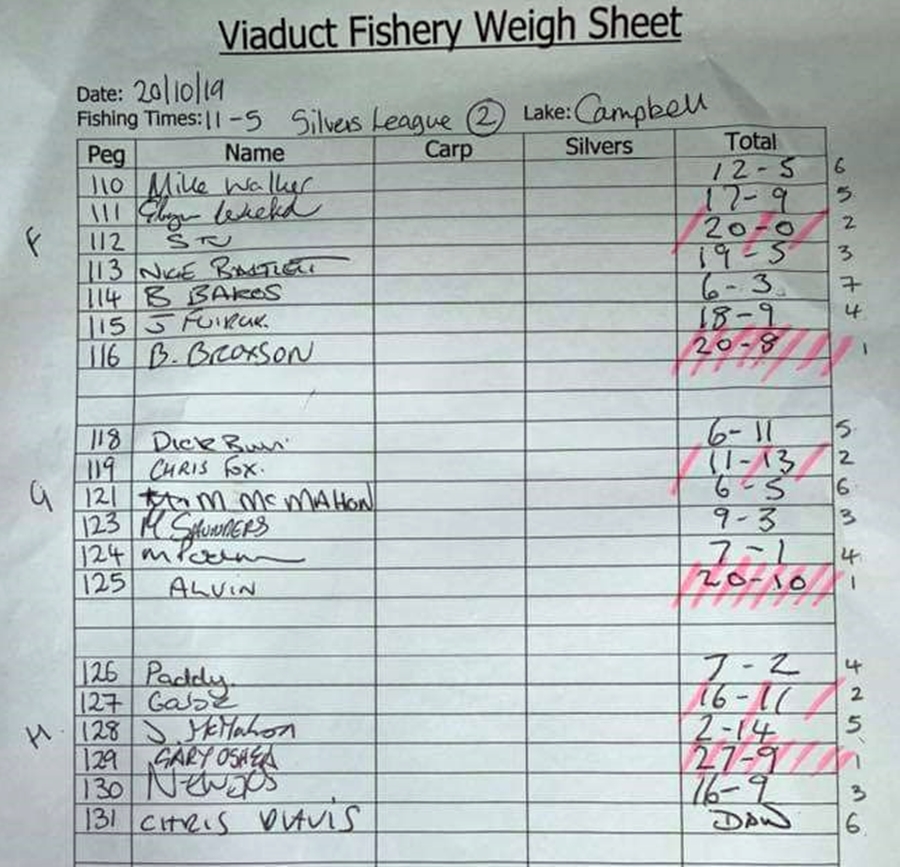 Viaduct Fishery Weigh Sheet
Date: 20/10/19
Fishing Times: 11-5 Silvers League ② Lake: Campbell
Peg Name Carp Silvers Total
110 Mike Walker 12-5 6
111 17-9 5
112 STU 20-0 2
F
113 19-5 3
114 B 6-3 7
115 J 18-9 4
116 B. BROXSON 20-8 1
118 DICK 6-11 5
119 CHRIS FOX. 11-13 2
G
121 M MCMAHON 6-5 6
123 M SAUNDERS 9-3 3
124 m 7-1 4
125 ALVIN 20-10 1
126 Paddy 7-2 4
127 16-11 2
128 J McMahon 2-14 5
H
129 GARY OSHEA 27-9 1
130 16-9 3
131 CHRIS DAVIS 6